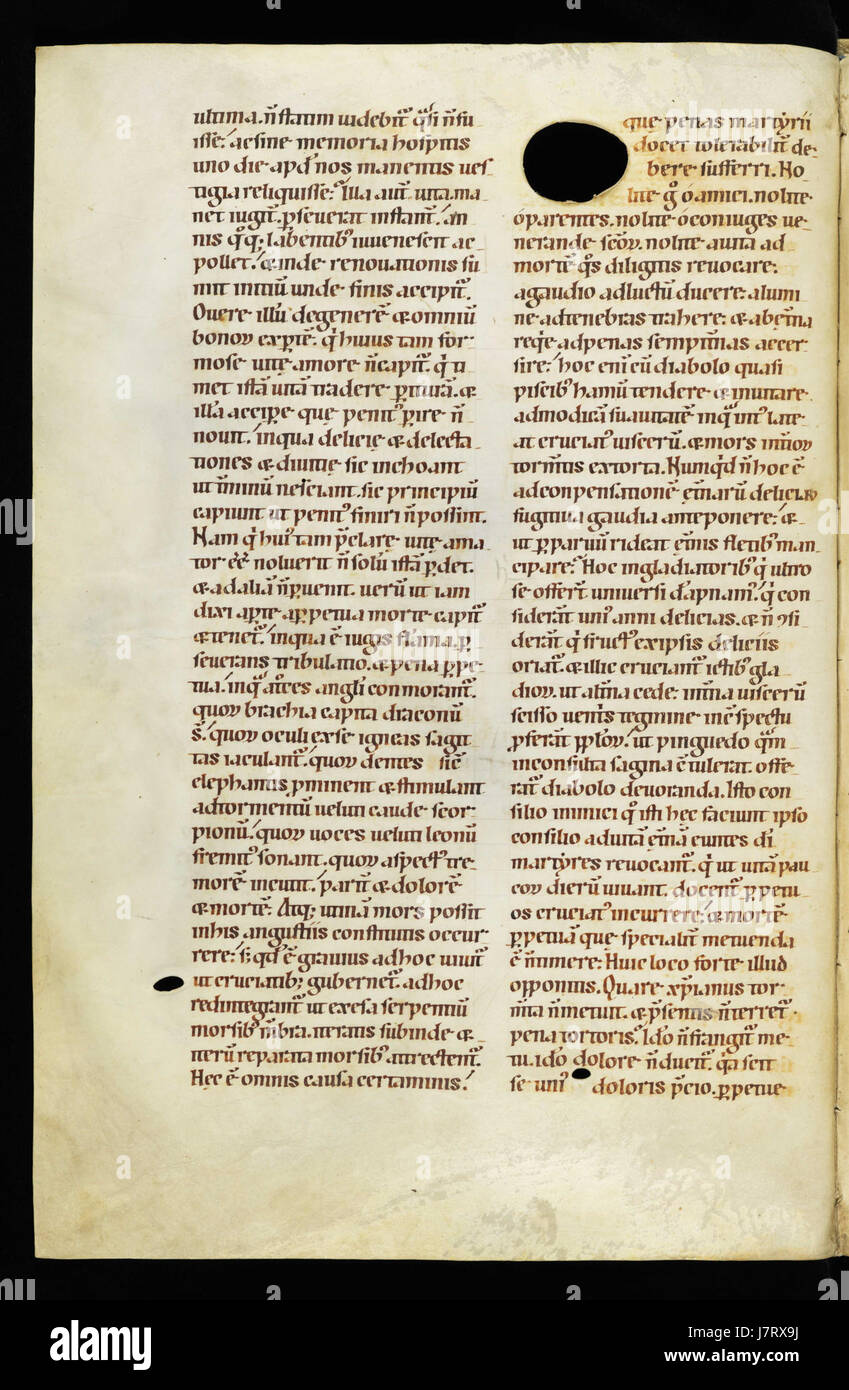 ultima. n̄ statim uidebit᷑ q̊si n̄ fu
isse. ac sine memoria hospitis
uno die apd̕ nos manentis ues
tigia reliquisse. Illa aut̄ uita. ma
net iugit᷑. ꝑseuerat instant᷑. an
nis q̊q; labentib᷒ iuuenescit ac
pollet. & inde renouationis su
mit initiū unde finis accipit᷑.
O uere illū degenerē & omniū
bonoꝝ exꝑtē. q̇ huius tam for
mose uite amore n̄ capit᷑. q̇ ti
met istā uitā tradere ꝑiturā. &
illā accipe que penit᷒ ꝑire n̄
nouit. in qua delicie & delecta
tiones & diuitie sic inchoant
ut t̄minū nesciant. sic principiū
capiunt ut penit᷒ finiri n̄ possint.
Nam q̇ hui᷒ tam p̄clare uite ama
tor ēē noluerit n̄ solū istā ꝑdet.
& ad aliā n̄ ꝑuenit. uerū ut iam
dixi aꝑte a ꝑpetua morte capit᷑
& tenet᷑. in qua ē iugis flāma. ꝑ
seuerans tribulatio. & pena ꝑpe
tua. in q̊ at̄ces angl̄i conmorant᷑.
quoꝝ brachia capita draconū
s̄. quoꝝ oculi ex se igneas sagit
tas iaculant᷑. quoꝝ dentes sic̄
elephantis p̄minent & stimulant
ad tormentū uelut caude scor
pionū. quoꝝ uoces uelut leonū
fremit᷒ sonant. quoꝝ aspect᷒ tre
morē incutit. parit᷑ & dolorē
& mortē. Atq; utinā mors possit
in his angustiis constitutis occur
rere. s; qd̕ ē grauius ad hoc uiuit᷑
ut cruciatib; gubernet᷑. ad hoc
redintegrant᷑ ut exesa serpentiū
morsib᷒ m̄bra. iteratis subinde &
iterū reparata morsib᷒ attrectent᷑.
Hec ē omnis causa certaminis.
que penas martẏrii
docet tolerabilit᷑ de
bere sufferri. No
lite g̊ o amici. nolite
o parentes. nolite o coniuges ue
nerande sc̄oꝝ. nolite a uita ad
mortē q̊s diligitis reuocare.
a gaudio ad luctū ducere. a lumi
ne ad tenebras trahere. & ab et̄na
req̇e ad penas sempit̄nas accer
sire. hoc eni cū diabolo quasi
piscib᷒ hamū tendere & inuitare
ad modicā suauitatē in q̊ int᷒ late
at cruciat᷒ uiscerū. & mors int̄noꝝ
torm̄tis extorta. Numqd̕ n̄ hoc ē
ad conpensationē et̄narū deliciaꝝ
fugitiua gaudia anteponere. &
ut ꝑ paruū rideat et̄nis fletib᷒ man
cipare. Hoc in gladiatorib᷒ q̇ ultro
se offert̄ uniuersi dāpnam᷒. q̇ con
siderāt uni᷒ anni delicias. & n̄ ꝯsi
derāt q̇ fruct᷒ ex ipsis deliciis
oriat᷑. & illic cruciant᷑ ictib᷒ gla
dioꝝ. ut alt̄na cede. int̄na uiscerū
scisso uent̄s tegmine in c̄spectu
ꝓferāt pp̄loꝝ. ut pinguedo q̊m
inconsulta sagina c̄tulerat. offe
rat᷑ diabolo deuoranda. Isto con
silio inimici q̊ isti hec faciunt ipso
consilio ad uitā et̄nā euntes dī
martẏres reuocant᷑. q̇ ut uitā pau
coꝝ dierū uiuant. docent᷑ ꝑpetu
os cruciat᷒ incurrere. & mortē
ꝑpetuā que specialit᷑ metuenda
ē n̄ timere. Huic loco forte illud
opponitis. Quare xp̄ianus tor
m̄ta n̄ metuit. & p̄sentis n̄ terret᷑
pena tortoris. Ido̕ n̄ frangit᷑ me
tu. ido̕ dolore n̄ ducit᷑. q̊a scit
se uni᷒ doloris p̄cio. ꝑpetue
alamy
Image ID: J7RX9J
www.alamy.com